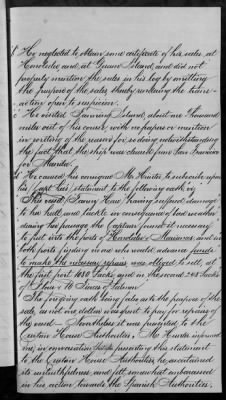 1 He neglected to obtain some certificate of his sales at
Honolulu and, at Guam Island, and did not
properly mention the sales in his log by omitting
the purpose of the sales, thereby rendering the trans-
action open to suspicion.
2 He visited Fanning Island, about one thousand
miles out of his course, with no papers or mention
in portlog of the reason for so doing notwithstanding
the fact that the ship was cleared from San Francisco
for Manila.
3 He caused his consignee Mr Hunter to subscribe upon
his (Capt's) statement to the following oath viz
"This vessel having suffered damage
to her hull and tackle in consequence of bad weather
during her passage the Captain found it necessary
to put into the ports of Honolulu & Marianas, and in
both ports, finding no one who would advance funds
to make the necessary repairs was obliged to sell, at
the first port 1030 Sacks and in the second 248 Sacks
of Flour & 70 Tins of Salmon"
The foregoing oath being false as to the purpose of the
sale, as not one dollar was spent to pay for repairs of
the vessel — Nevertheless it was presented to the
Custom House Authorities, Mr Hunter informed
me, in conversation that after presenting this statement
to the Custom House Authorities, he ascertained
its untruthfulness and felt somewhat embarrassed
in his action towards the Spanish Authorities.